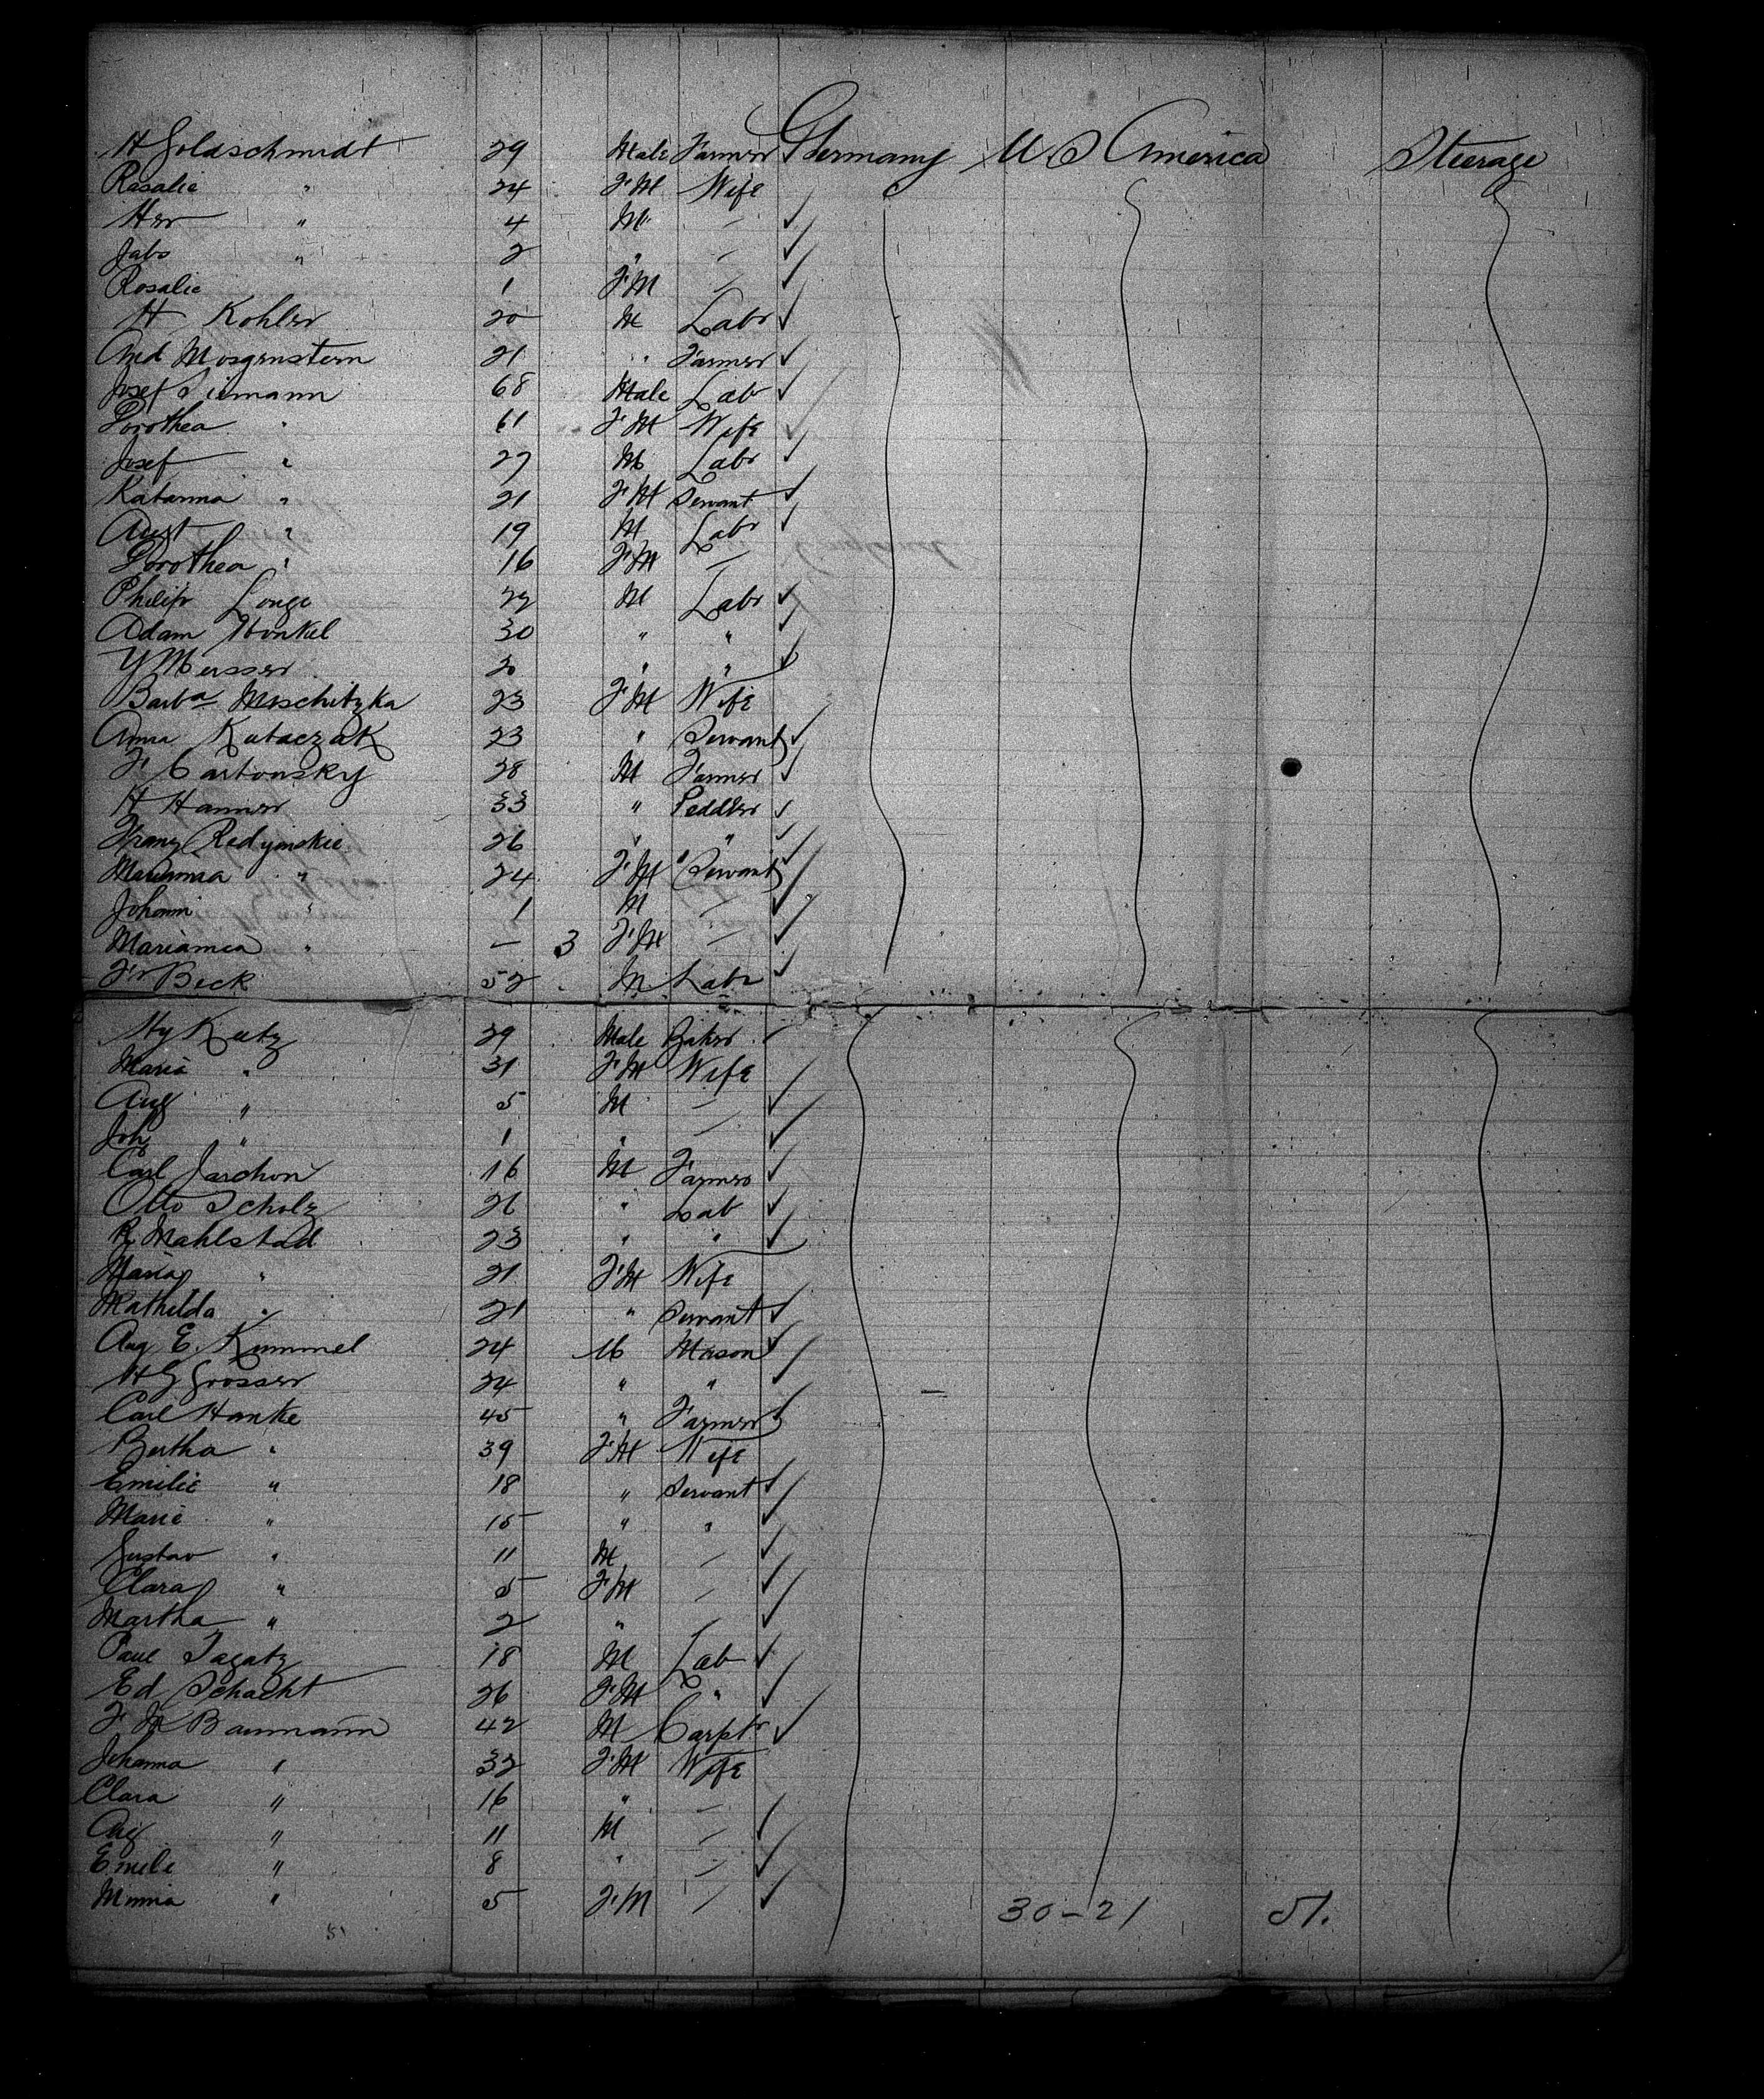 H Goldschmidt 29 Male Farmer Germany U S America Steerage
Rosalie " 24 F'M Wife
Her " 4 M —
Jabs " 2 " —
Rosalie 1 F'M —
H Kohler 20 M Labr
And Morgenstern 21 " Farmer
Josef Siemann 68 Male Lab
Dorothea " 61 F'M Wife
Josef " 27 M Labr
Katarina " 21 F'M Servant
Aust " 19 M Labr
Dorothea " 16 F'M —
Philip Longe 22 M Labr
Adam Wonkel 30 " "
Y Messer 20 " "
Barba Moschitzka 23 F'M Wife
Anna Kutaczak 23 " Servant
F Cartonsky 28 M Farmer
H Hammer 33 " Peddler
Franz Redymskie 26 " "
Marianna " 24 F'M Servant
Johann " 1 M —
Mariamea " — 3 F'M —
Fr Beck 52 M Labr
Hy Kutz 29 Male Baker
Maria " 31 F'M Wife
Aug " 5 M —
Joh " 1 " —
Carl Jarchow 16 M Farmer
Otto Scholz 26 " Lab
R Mahlstad 23 " "
Maria " 21 F'M Wife
Mathilda " 21 " Servant
Aug E. Kummel 24 M Mason
H G Grosser 24 " "
Carl Hanke 45 " Farmer
Bertha " 39 F'M Wife
Emilie " 18 " Servant
Marie " 15 " "
Gustav " 11 M —
Clara " 5 F'M —
Martha " 2 " —
Paul Tagatz 18 M Lab
Ed Schacht 26 F'M "
F W Baumann 42 M Carptr
Johanna " 32 F'M Wife
Clara " 16 " —
Aug " 11 M —
Emile " 8 " —
Minna " 5 F'M —
30-21 51.